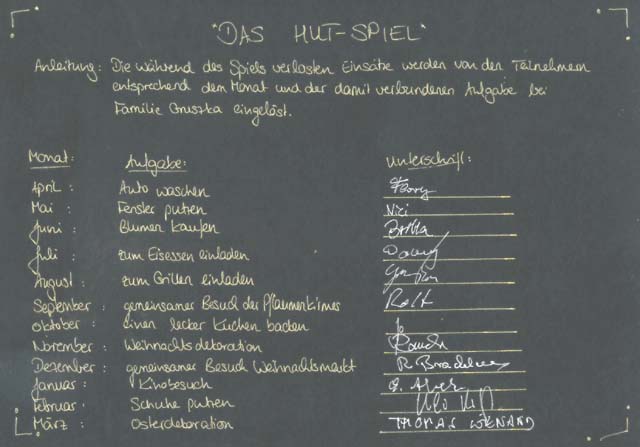 "DAS HUT-SPIEL"
Anleitung: Die während des Spiels verlosten Einsätze werden von den Teilnehmern
entsprechend dem Monat und der damit verbundenen Aufgabe bei
Familie Gruszka eingelöst.
Monat: Aufgabe: Unterschrift:
April : Auto waschen
Mai : Fenster putzen Nici
Juni : Blumen kaufen Britta
Juli : zum Eisessen einladen Danny
August : zum Grillen einladen
September : gemeinsamer Besuch der Pflaumenkirmes Rolf
Oktober : einen lecker Kuchen backen Jo
November : Weihnachtsdekoration
Dezember : gemeinsamer Besuch Weihnachtsmarkt
Januar : Kinobesuch
Februar : Schuhe putzen
März : Osterdekoration THOMAS WIENAND